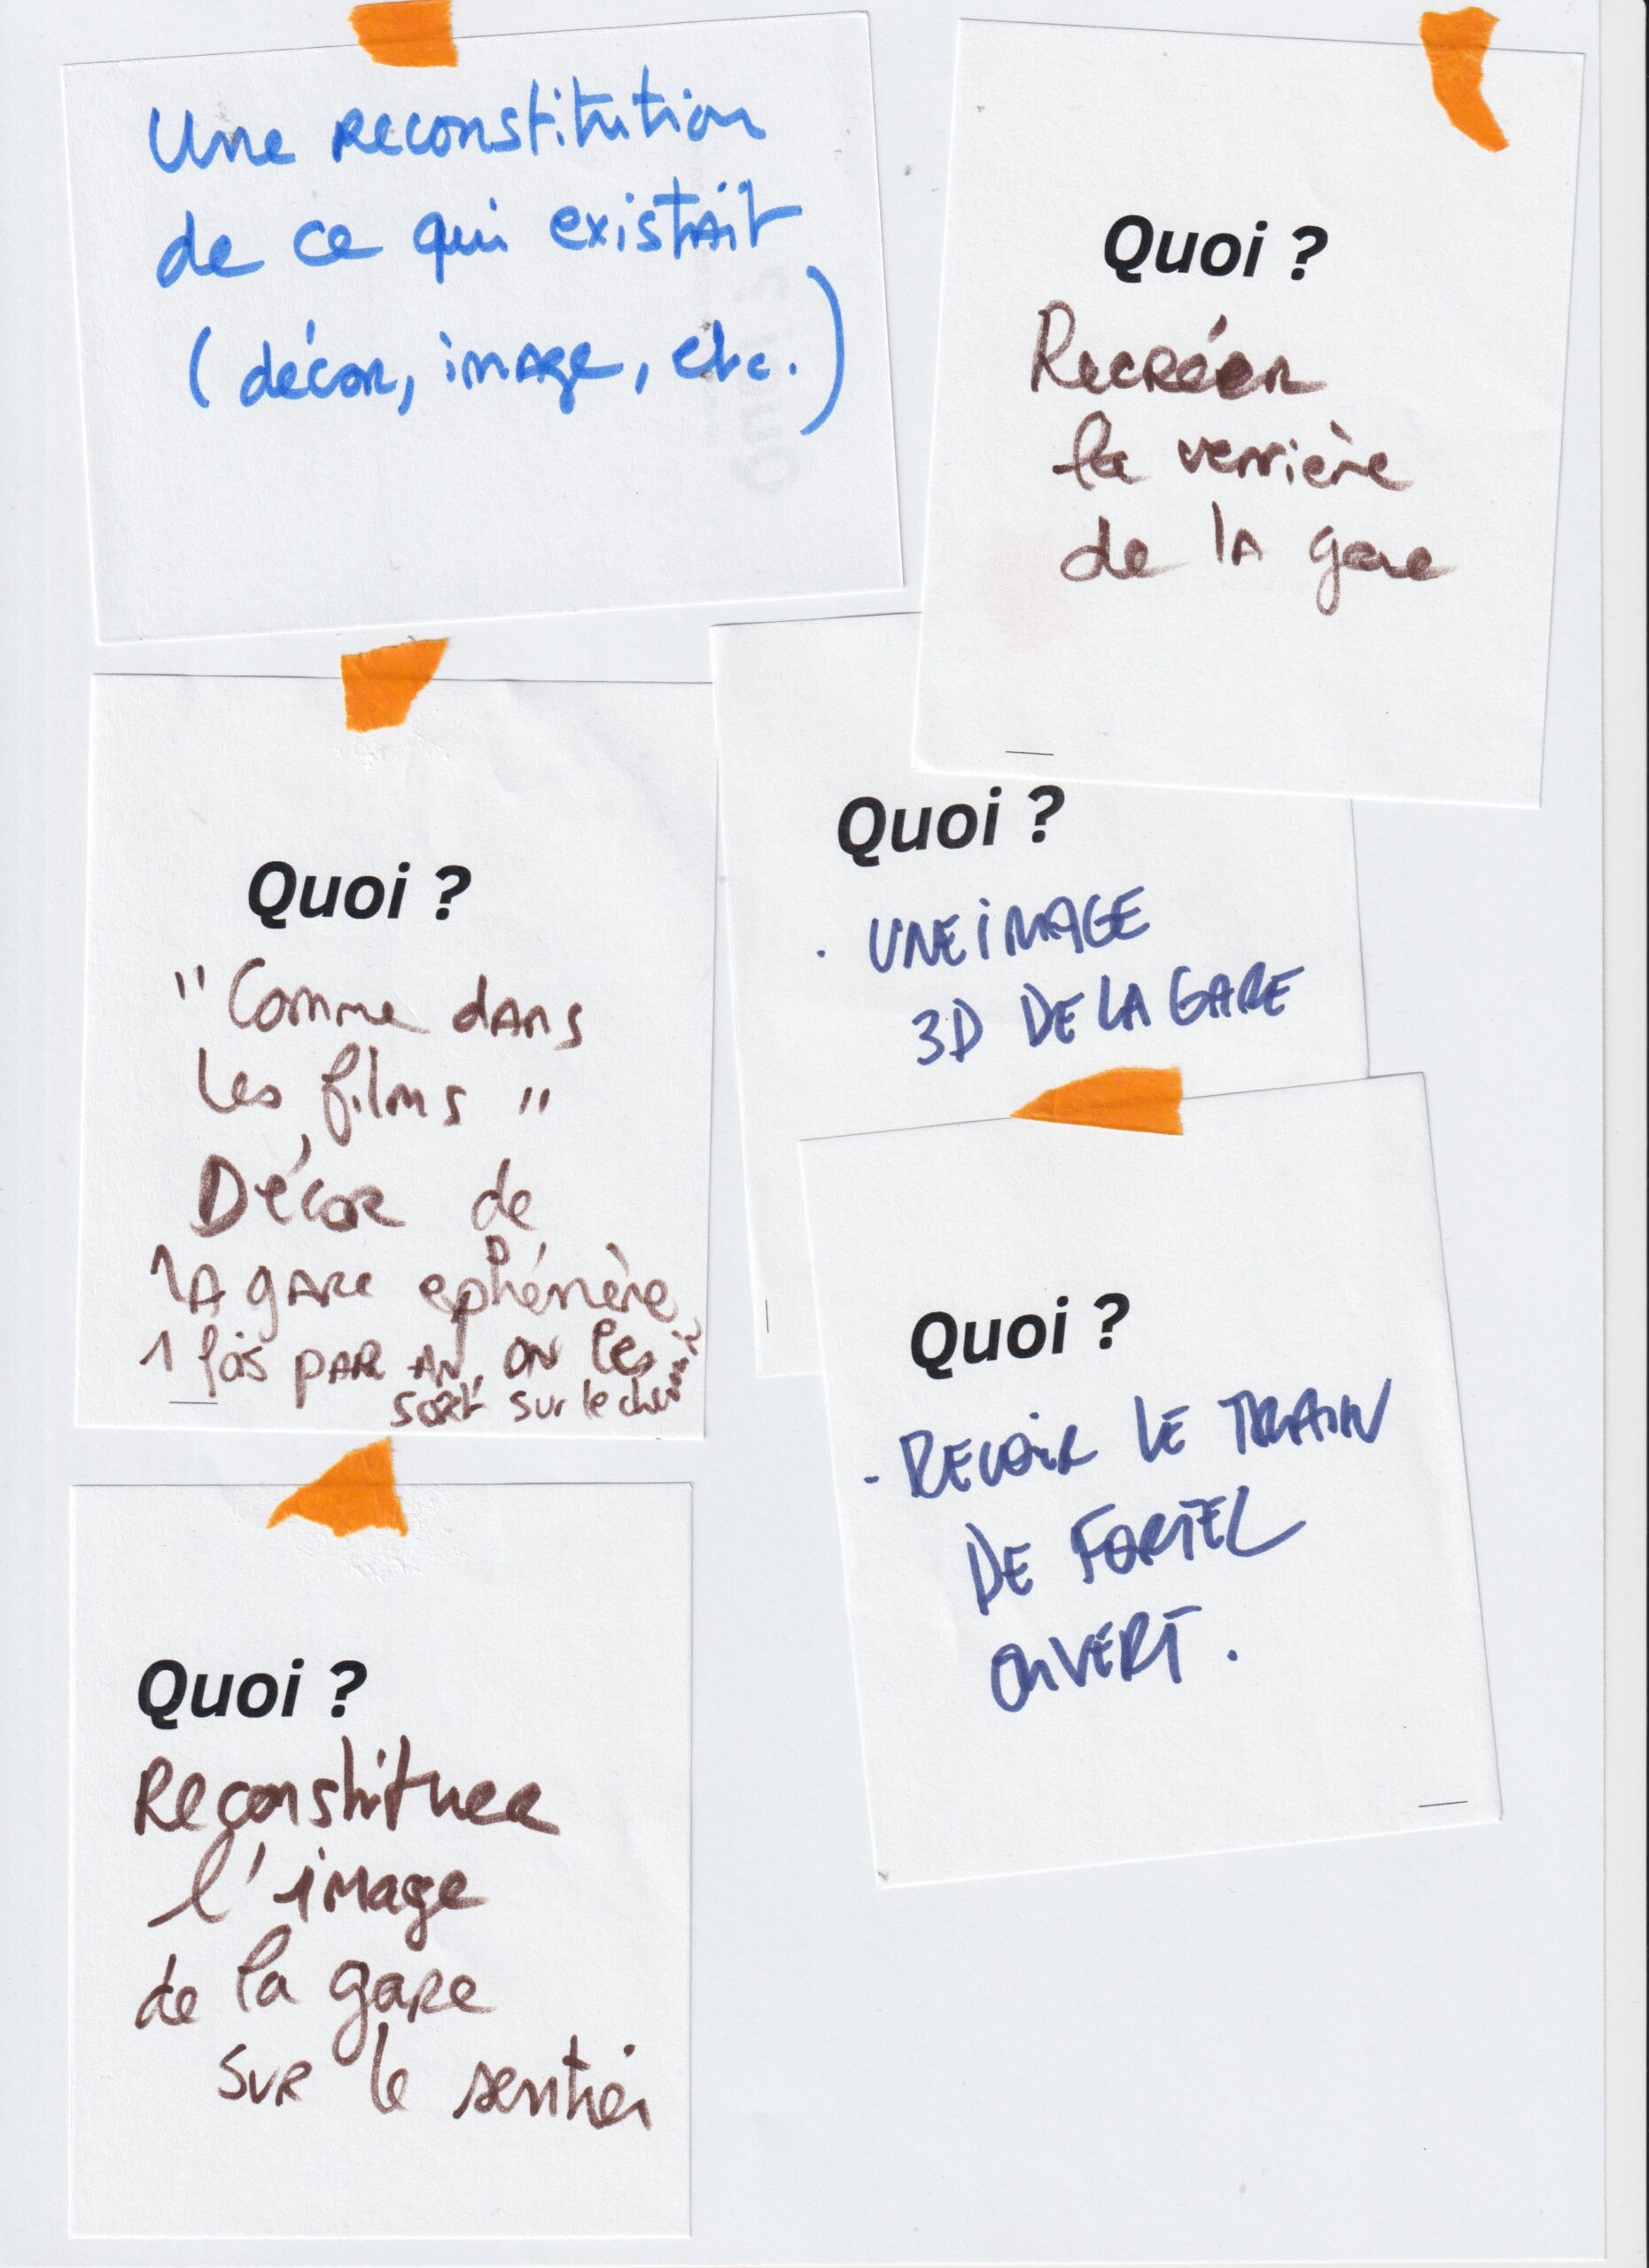 Une reconstitution
de ce qui existait
(décor, image, etc.)
Quoi ?
Recréer
la verrière
de la gare
Quoi ?
"Comme dans
les films"
Décor de
la gare ephémère
1 fois par an, on les
sort sur le chemin
Quoi ?
. UNE IMAGE
3D DE LA GARE
Quoi ?
- REVOIR LE TRAIN
DE FORTEL
OUVERT.
Quoi ?
Reconstituer
l'image
de la gare
sur le sentier